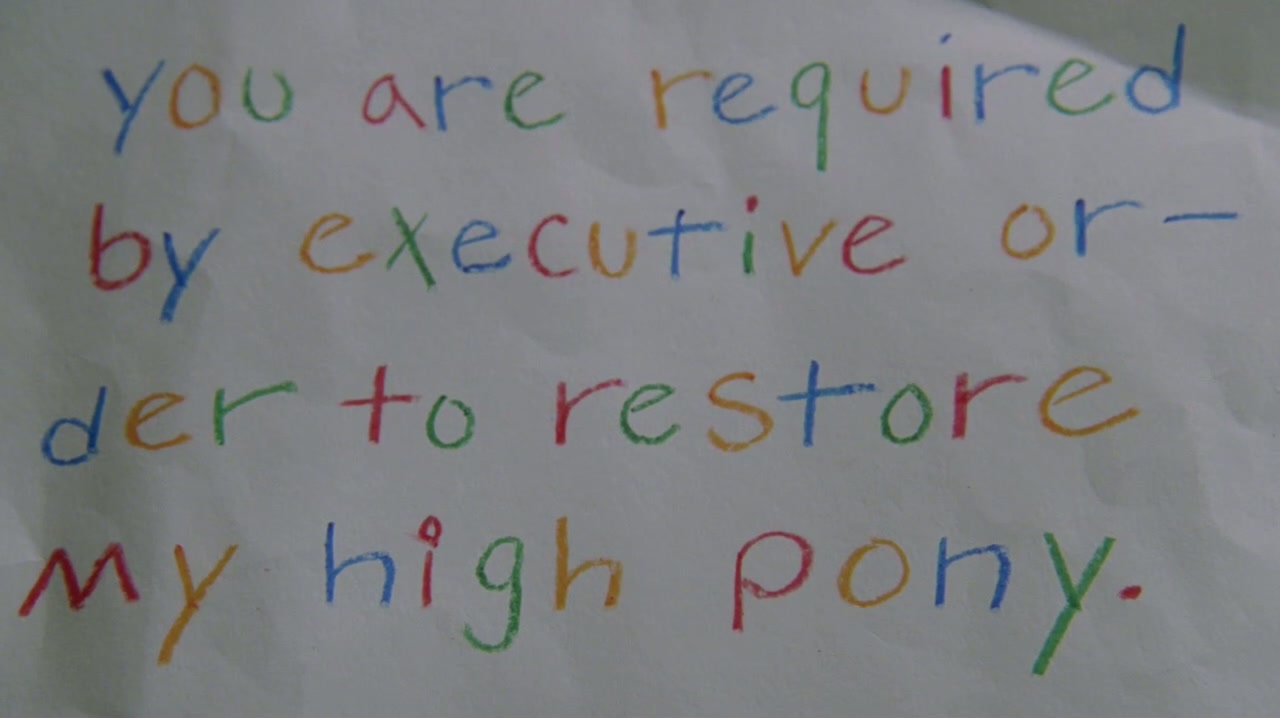 you are required
by executive or-
der to restore
my high pony.